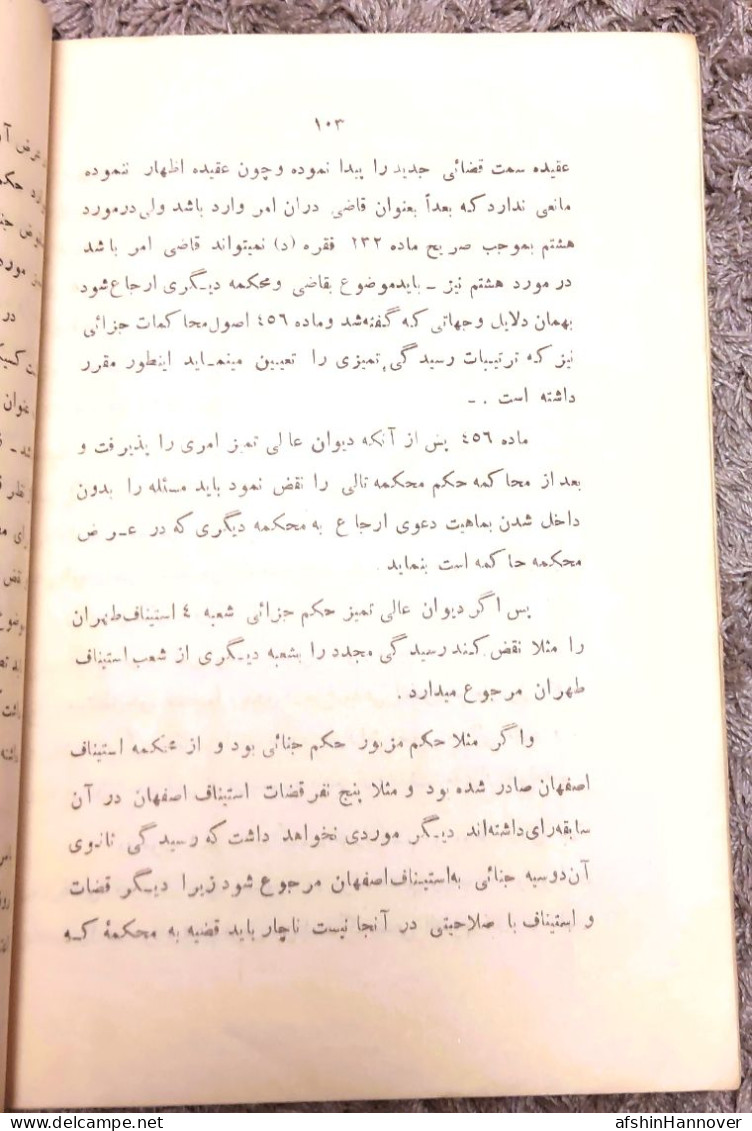 ١٠٣
عقیده سمت قضائی جدید را پیدا نموده وچون عقیده اظهار ننموده
مانعی ندارد که بعداً بعنوان قاضی دران امر وارد باشد ولی درمورد
هشتم بموجب صریح ماده ٢٣٢ فقره (د) نمیتواند قاضی امر باشد
در مورد هشتم نیز ـ باید موضوع بقاضی ومحکمه دیگری ارجاع شود
بهمان دلایل وجهاتی که گفته شد وماده ٤٥٦ اصول محاکمات جزائی
نیز که ترتیبات رسیدگی تمیزی را تعیین مینماید اینطور مقرر
داشته است . ـ
ماده ٤٥٦ پس از آنکه دیوان عالی تمیز امری را پذیرفت و
بعد از محاکمه حکم محکمه تالی را نقض نمود باید مسئله را بدون
داخل شدن بماهیت دعوی ارجاع به محکمه دیگری که در عرض
محکمه حاکمه است بنماید .
پس اگر دیوان عالی تمیز حکم جزائی شعبه ٤ استیناف طهران
را مثلا نقض کند رسیدگی مجدد را بشعبه دیگری از شعب استیناف
طهران مرجوع میدارد .
واگر مثلا حکم مزبور حکم جنائی بود و از محکمه استیناف
اصفهان صادر شده بود و مثلا پنج نفر قضات استیناف اصفهان در آن
سابقه رای داشته‌اند دیگر موردی نخواهد داشت که رسیدگی ثانوی
آن دوسیه جنائی به استیناف اصفهان مرجوع شود زیرا دیگر قضات
و استیناف با صلاحیتی در آنجا نیست ناچار باید قضیه به محکمهٔ که
afshinHannover